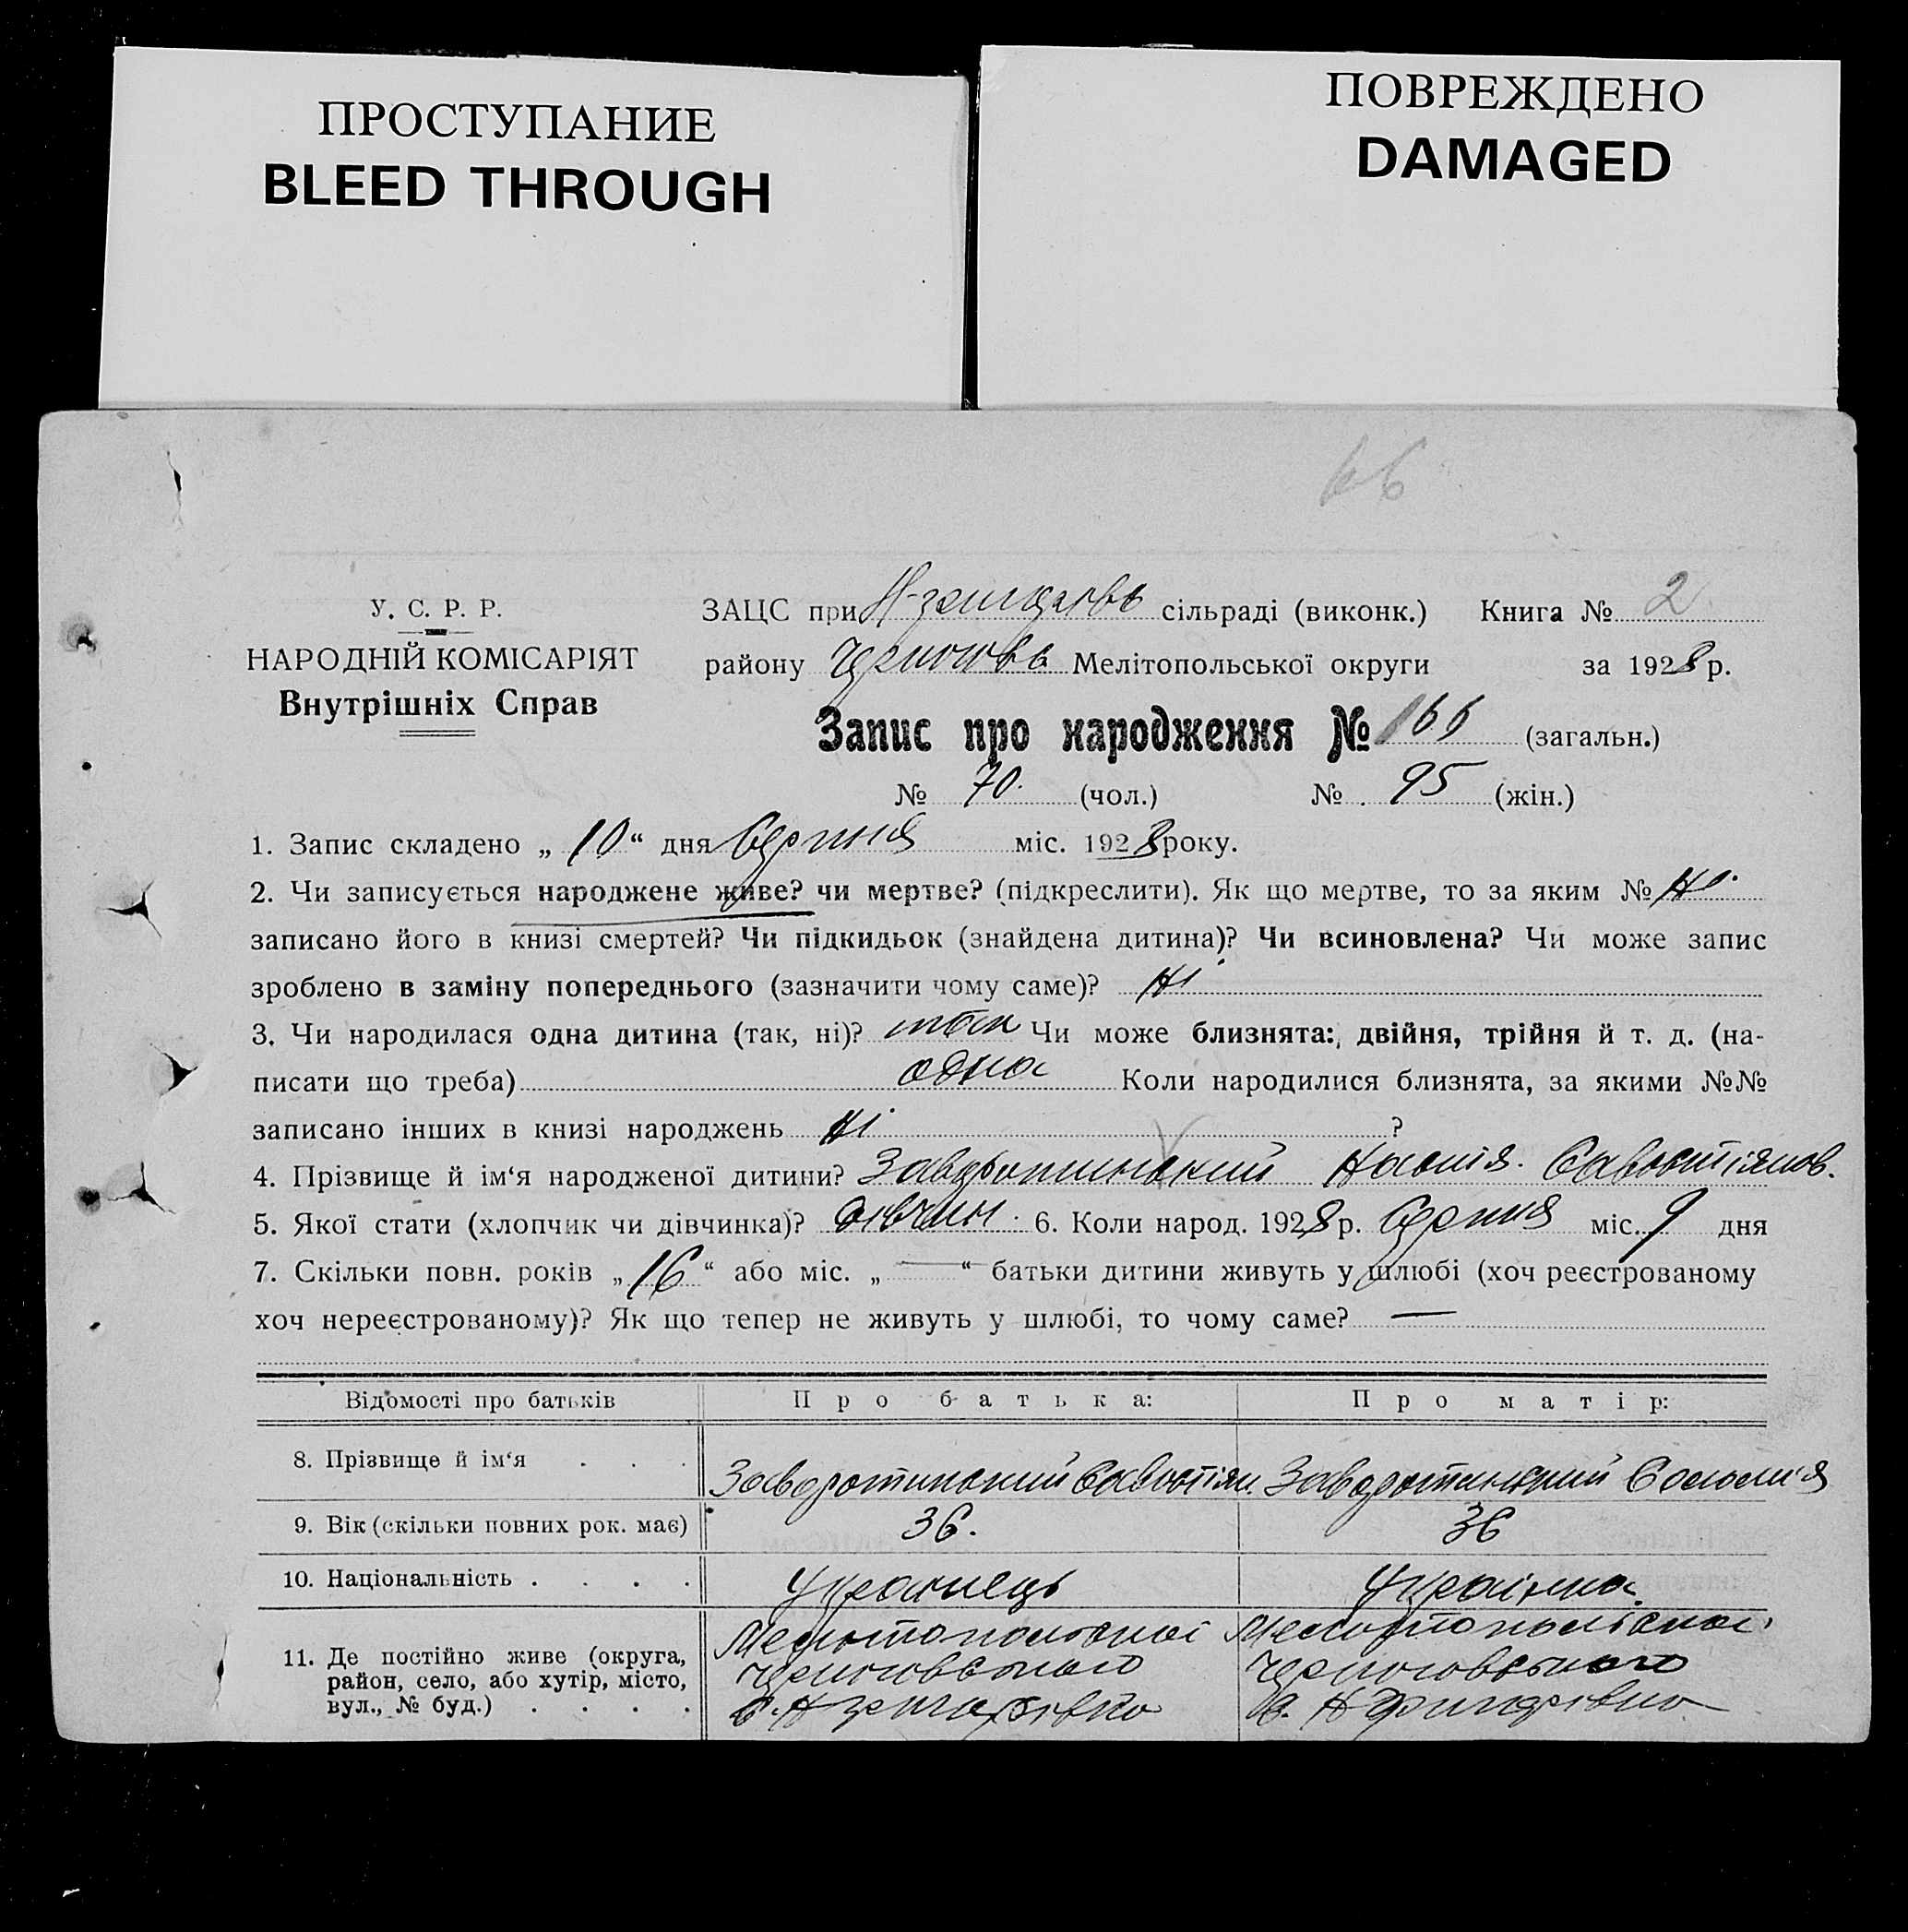 ПРОСТУПАНИЕ
BLEED THROUGH
ПОВРЕЖДЕНО
DAMAGED
66
У. С. Р. Р.
НАРОДНІЙ КОМІСАРІЯТ
Внутрішніх Справ
ЗАЦС при сільраді (виконк.) Книга № 2
району Мелітопольської округи за 1928 р.
Запис про народження № 166 (загальн.)
№ 70. (чол.) № 95 (жін.)
1. Запис складено „ 10 “ дня Серпня міс. 1928 року.
2. Чи записується народжене живе? чи мертве? (підкреслити). Як що мертве, то за яким № Ні
записано його в книзі смертей? Чи підкидьок (знайдена дитина)? Чи всиновлена? Чи може запис
зроблено в заміну попереднього (зазначити чому саме)? Ні
3. Чи народилася одна дитина (так, ні)? так Чи може близнята: двійня, трійня й т. д. (на-
писати що треба) одна Коли народилися близнята, за якими №№
записано інших в книзі народжень Ні ?
4. Прізвище й ім‘я народженої дитини? Заворотинский Савостіянов.
5. Якої стати (хлопчик чи дівчинка)? дівчин. 6. Коли народ. 1928 р. Серпня міс. 9 дня
7. Скільки повн. років „ 16 “ або міс. „ — “ батьки дитини живуть у шлюбі (хоч реєстрованому
хоч нереєстрованому)? Як що тепер не живуть у шлюбі, то чому саме? —
Відомості про батьків Про батька: Про матір:
8. Прізвище й ім‘я . . . Заворотинский Савостіян. Заворотинский Соломія
9. Вік (скільки повних рок. має) 36. 36
10. Національність . . . . Українець Українка
11. Де постійно живе (округа, Мелітопольскоі Мелітопольскоі
район, село, або хутір, місто, Черниговського Черниговського
вул., № буд.) . . . .